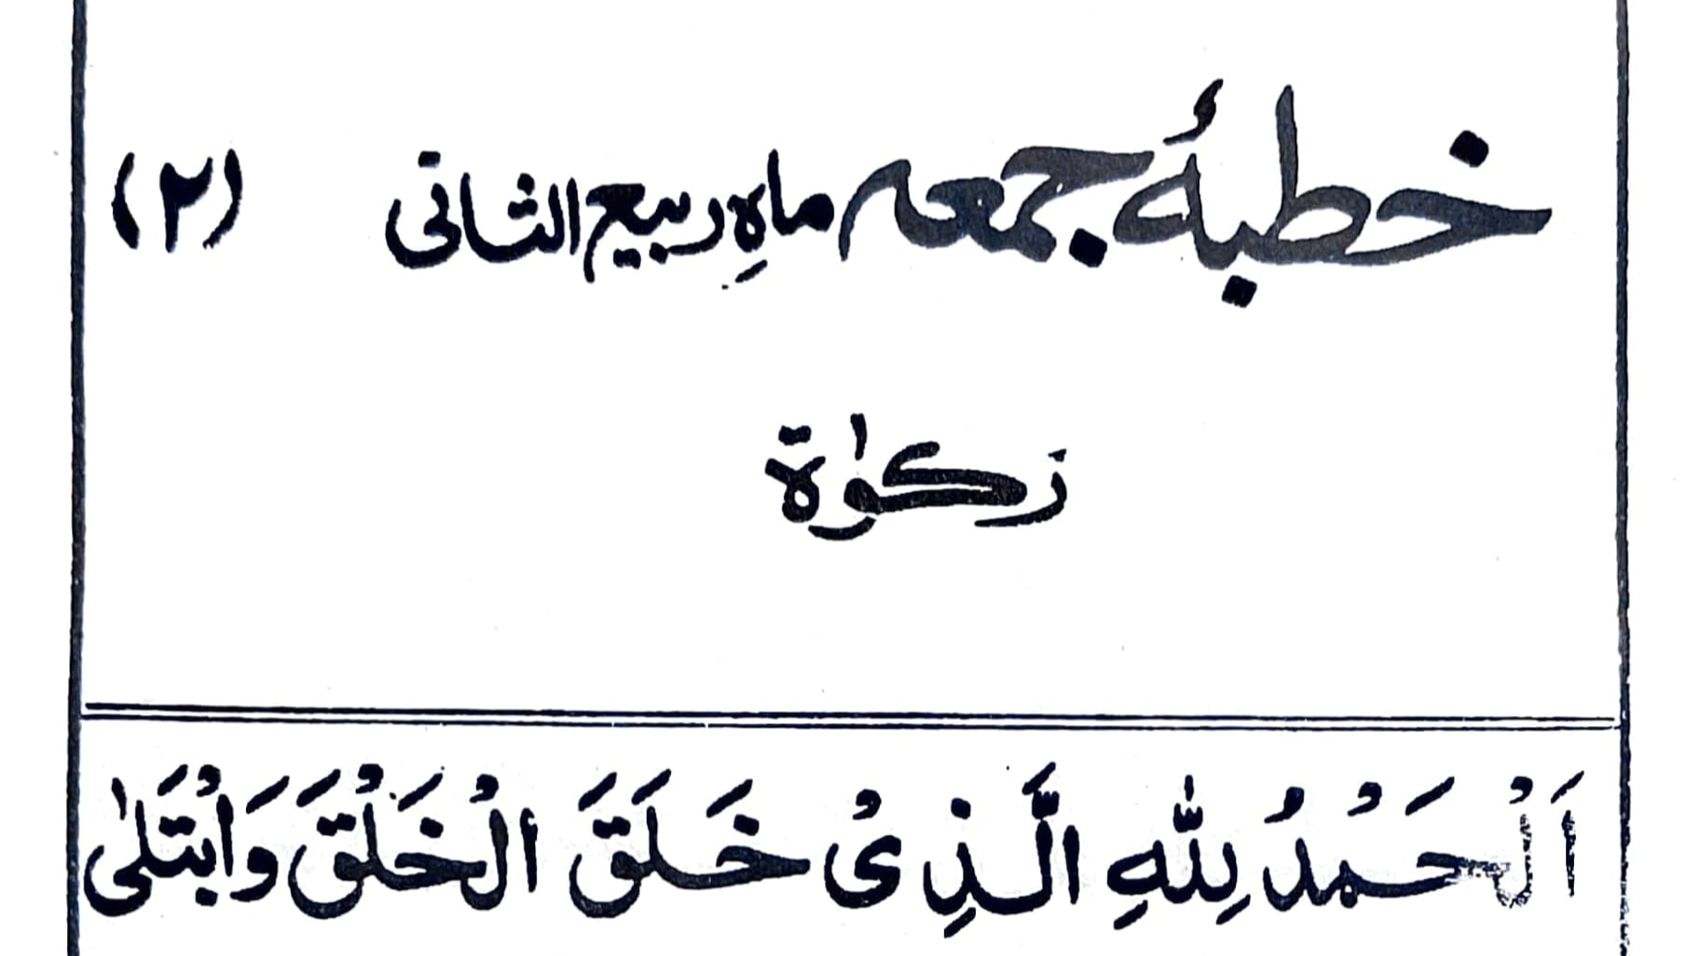 خطبۂ جمعہ ماہِ ربیع الثانی (۲)
زکوٰۃ
اَلْحَمْدُ لِلّٰهِ الَّذِیْ خَلَقَ الْخَلْقَ وَابْتَلٰی